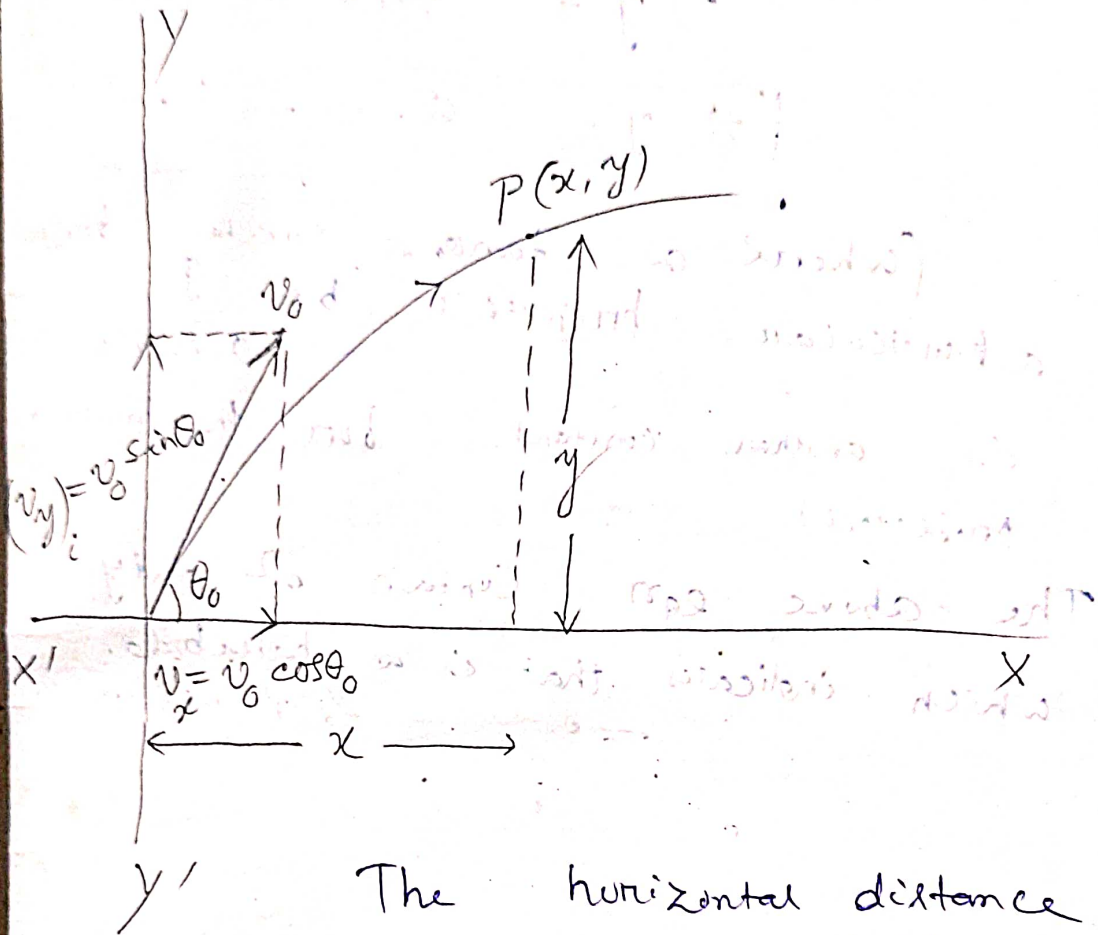 Y
P(x, y)
v₀
(v_y)_i = v₀ sinθ₀
y
θ₀
X'
X
v_x = v₀ cosθ₀
x
Y'
The horizontal distance